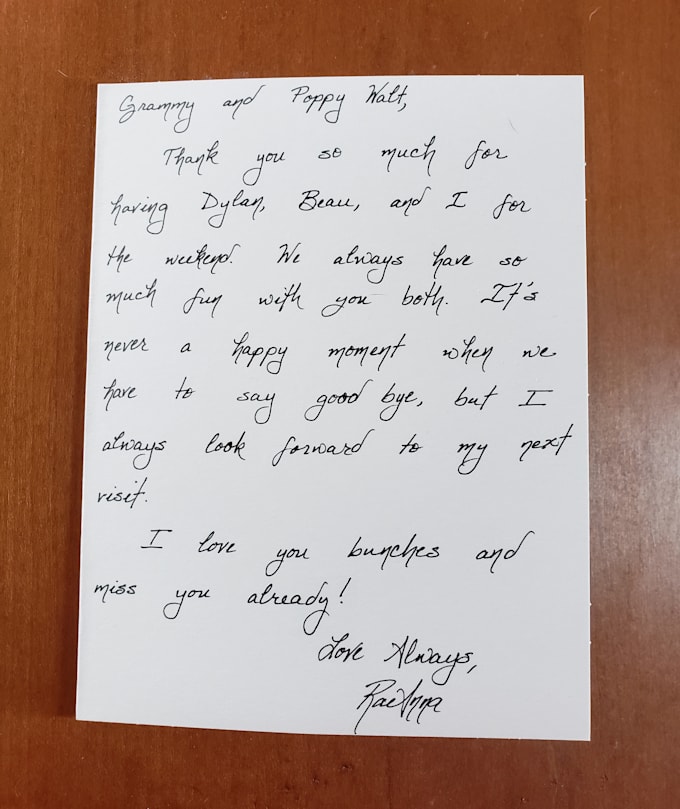 Grammy and Poppy Walt,
Thank you so much for
having Dylan, Beau, and I for
the weekend. We always have so
much fun with you both. It's
never a happy moment when we
have to say good bye, but I
always look forward to my next
visit.
I love you bunches and
miss you already!
Love Always,
RaeAnna